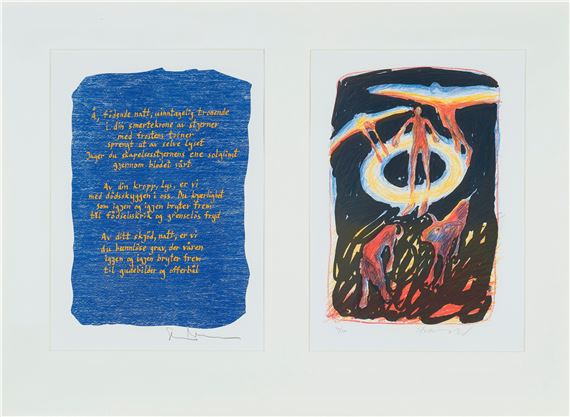 Å, fødende natt, uinntagelig tronende
i din smertekrone av stjerner
med frostens tinder
sprengt ut av selve lyset
Jager du skapelsesstjernens ene solglimt
gjennom blodet vårt
Av din kropp, lys, er vi
med dødsskyggen i oss. Du kjærlighet
som igjen og igjen bryter frem
til fødselsskrik og grenseløs fryd
Av ditt skjød, natt, er vi
du bunnløse grav, der våren
igjen og igjen bryter frem
til gudebilder og offerbål